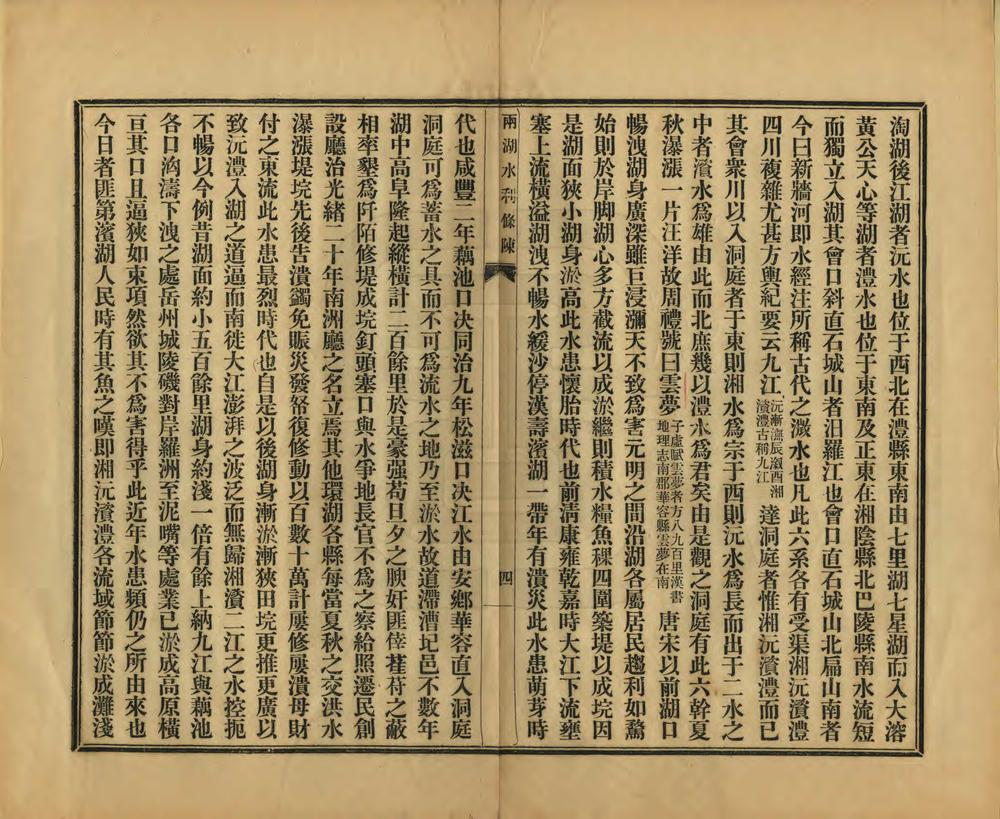 淘湖後江湖者沅水也位于西北在澧縣東南由七里湖七星湖而入大溶
黃公天心等湖者澧水也位于東南及正東在湘陰縣北巴陵縣南水流短
而獨立入湖其會口斜直石城山者汨羅江也會口直石城山北扁山南者
今曰新牆河即水經注所稱古代之㵋水也凡此六系各有受渠湘沅濱澧
四川複雜尤甚方輿紀要云九江沅漸潕辰漵酉湘
濱澧古稱九江達洞庭者惟湘沅濱澧而已
其會衆川以入洞庭者于東則湘水爲宗于西則沅水爲長而出于二水之
中者濱水爲雄由此而北庶幾以澧水爲君矣由是觀之洞庭有此六幹夏
秋瀑漲一片汪洋故周禮號曰雲夢子虛賦雲夢者方八九百里漢書
地理志南郡華容縣雲夢在南唐宋以前湖口
暢洩湖身廣深雖巨浸瀰天不致爲害元明之間沿湖各屬居民趨利如鶩
始則於岸脚湖心多方截流以成淤繼則積水糧魚稞四圍築堤以成垸因
是湖面狹小湖身淤高此水患懷胎時代也前淸康雍乾嘉時大江下流壅
塞上流橫溢湖洩不暢水緩沙停漢壽濱湖一帶年有潰災此水患萌芽時
兩湖水利條陳
四
代也咸豐二年藕池口决同治九年松滋口决江水由安鄉華容直入洞庭
洞庭可爲蓄水之具而不可爲流水之地乃至淤水故道滯漕圮邑不數年
湖中高阜隆起縱橫計二百餘里於是豪强苟旦夕之腴奸匪倖萑苻之蔽
相率墾爲阡陌修堤成垸釘頭塞口與水爭地長官不爲之察給照遷民創
設廳治光緒二十年南洲廳之名立焉其他環湖各縣每當夏秋之交洪水
瀑漲堤垸先後告潰蠲免賑災發帑復修動以百數十萬計屢修屢潰母財
付之東流此水患最烈時代也自是以後湖身漸淤漸狹田垸更推更廣以
致沅澧入湖之道逼而南徙大江澎湃之波泛而無歸湘濱二江之水控扼
不暢以今例昔湖面約小五百餘里湖身約淺一倍有餘上納九江與藕池
各口洶濤下洩之處岳州城陵磯對岸羅洲至泥嘴等處業已淤成高原橫
亘其口且逼狹如束項然欲其不爲害得乎此近年水患頻仍之所由來也
今日者匪第濱湖人民時有其魚之嘆即湘沅濱澧各流域節節淤成灘淺